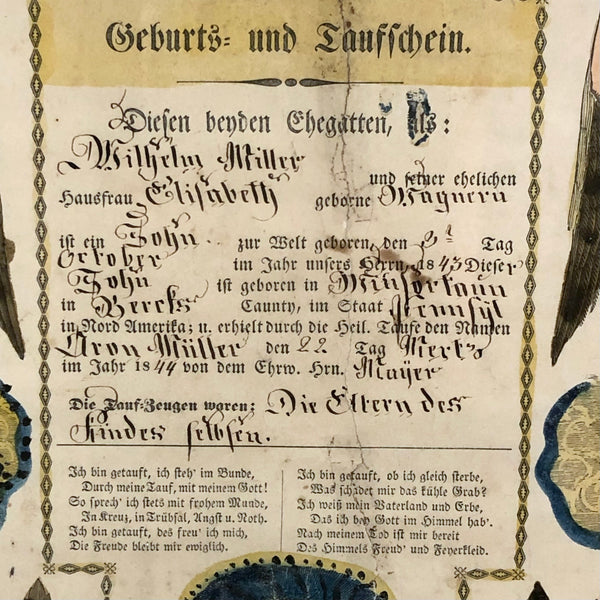 Geburts- und Taufschein.
Diesen beyden Ehegatten, als:
Wilhelm Miller
und seiner ehelichen
Hausfrau Elisabeth geborne Wagnern
ist ein Sohn zur Welt geboren, den 8t Tag
October im Jahr unsers Herrn, 1843 Dieser
Sohn ist geboren in
in Bercks Caunty, im Staat Pennsyl
in Nord Amerika; u. erhielt durch die Heil. Taufe den Namen
Aron Müller den 22 Tag Mertz
im Jahr 1844 von dem Ehrw. Hrn. Mayer
Die Tauf-Zeugen waren; Die Eltern des
Kindes selbsen.
Ich bin getauft, ich steh' im Bunde,
Durch meine Tauf, mit meinem Gott!
So sprech' ich stets mit frohem Munde,
In Kreuz, in Trübsal, Angst u. Noth.
Ich bin getauft, des freu' ich mich,
Die Freude bleibt mir ewiglich.
Ich bin getauft, ob ich gleich sterbe,
Was schadet mir das kühle Grab?
Ich weiß mein Vaterland und Erbe,
Das ich bey Gott im Himmel hab'.
Nach meinem Tod ist mir bereit
Des Himmels Freud' und Feyerkleid.